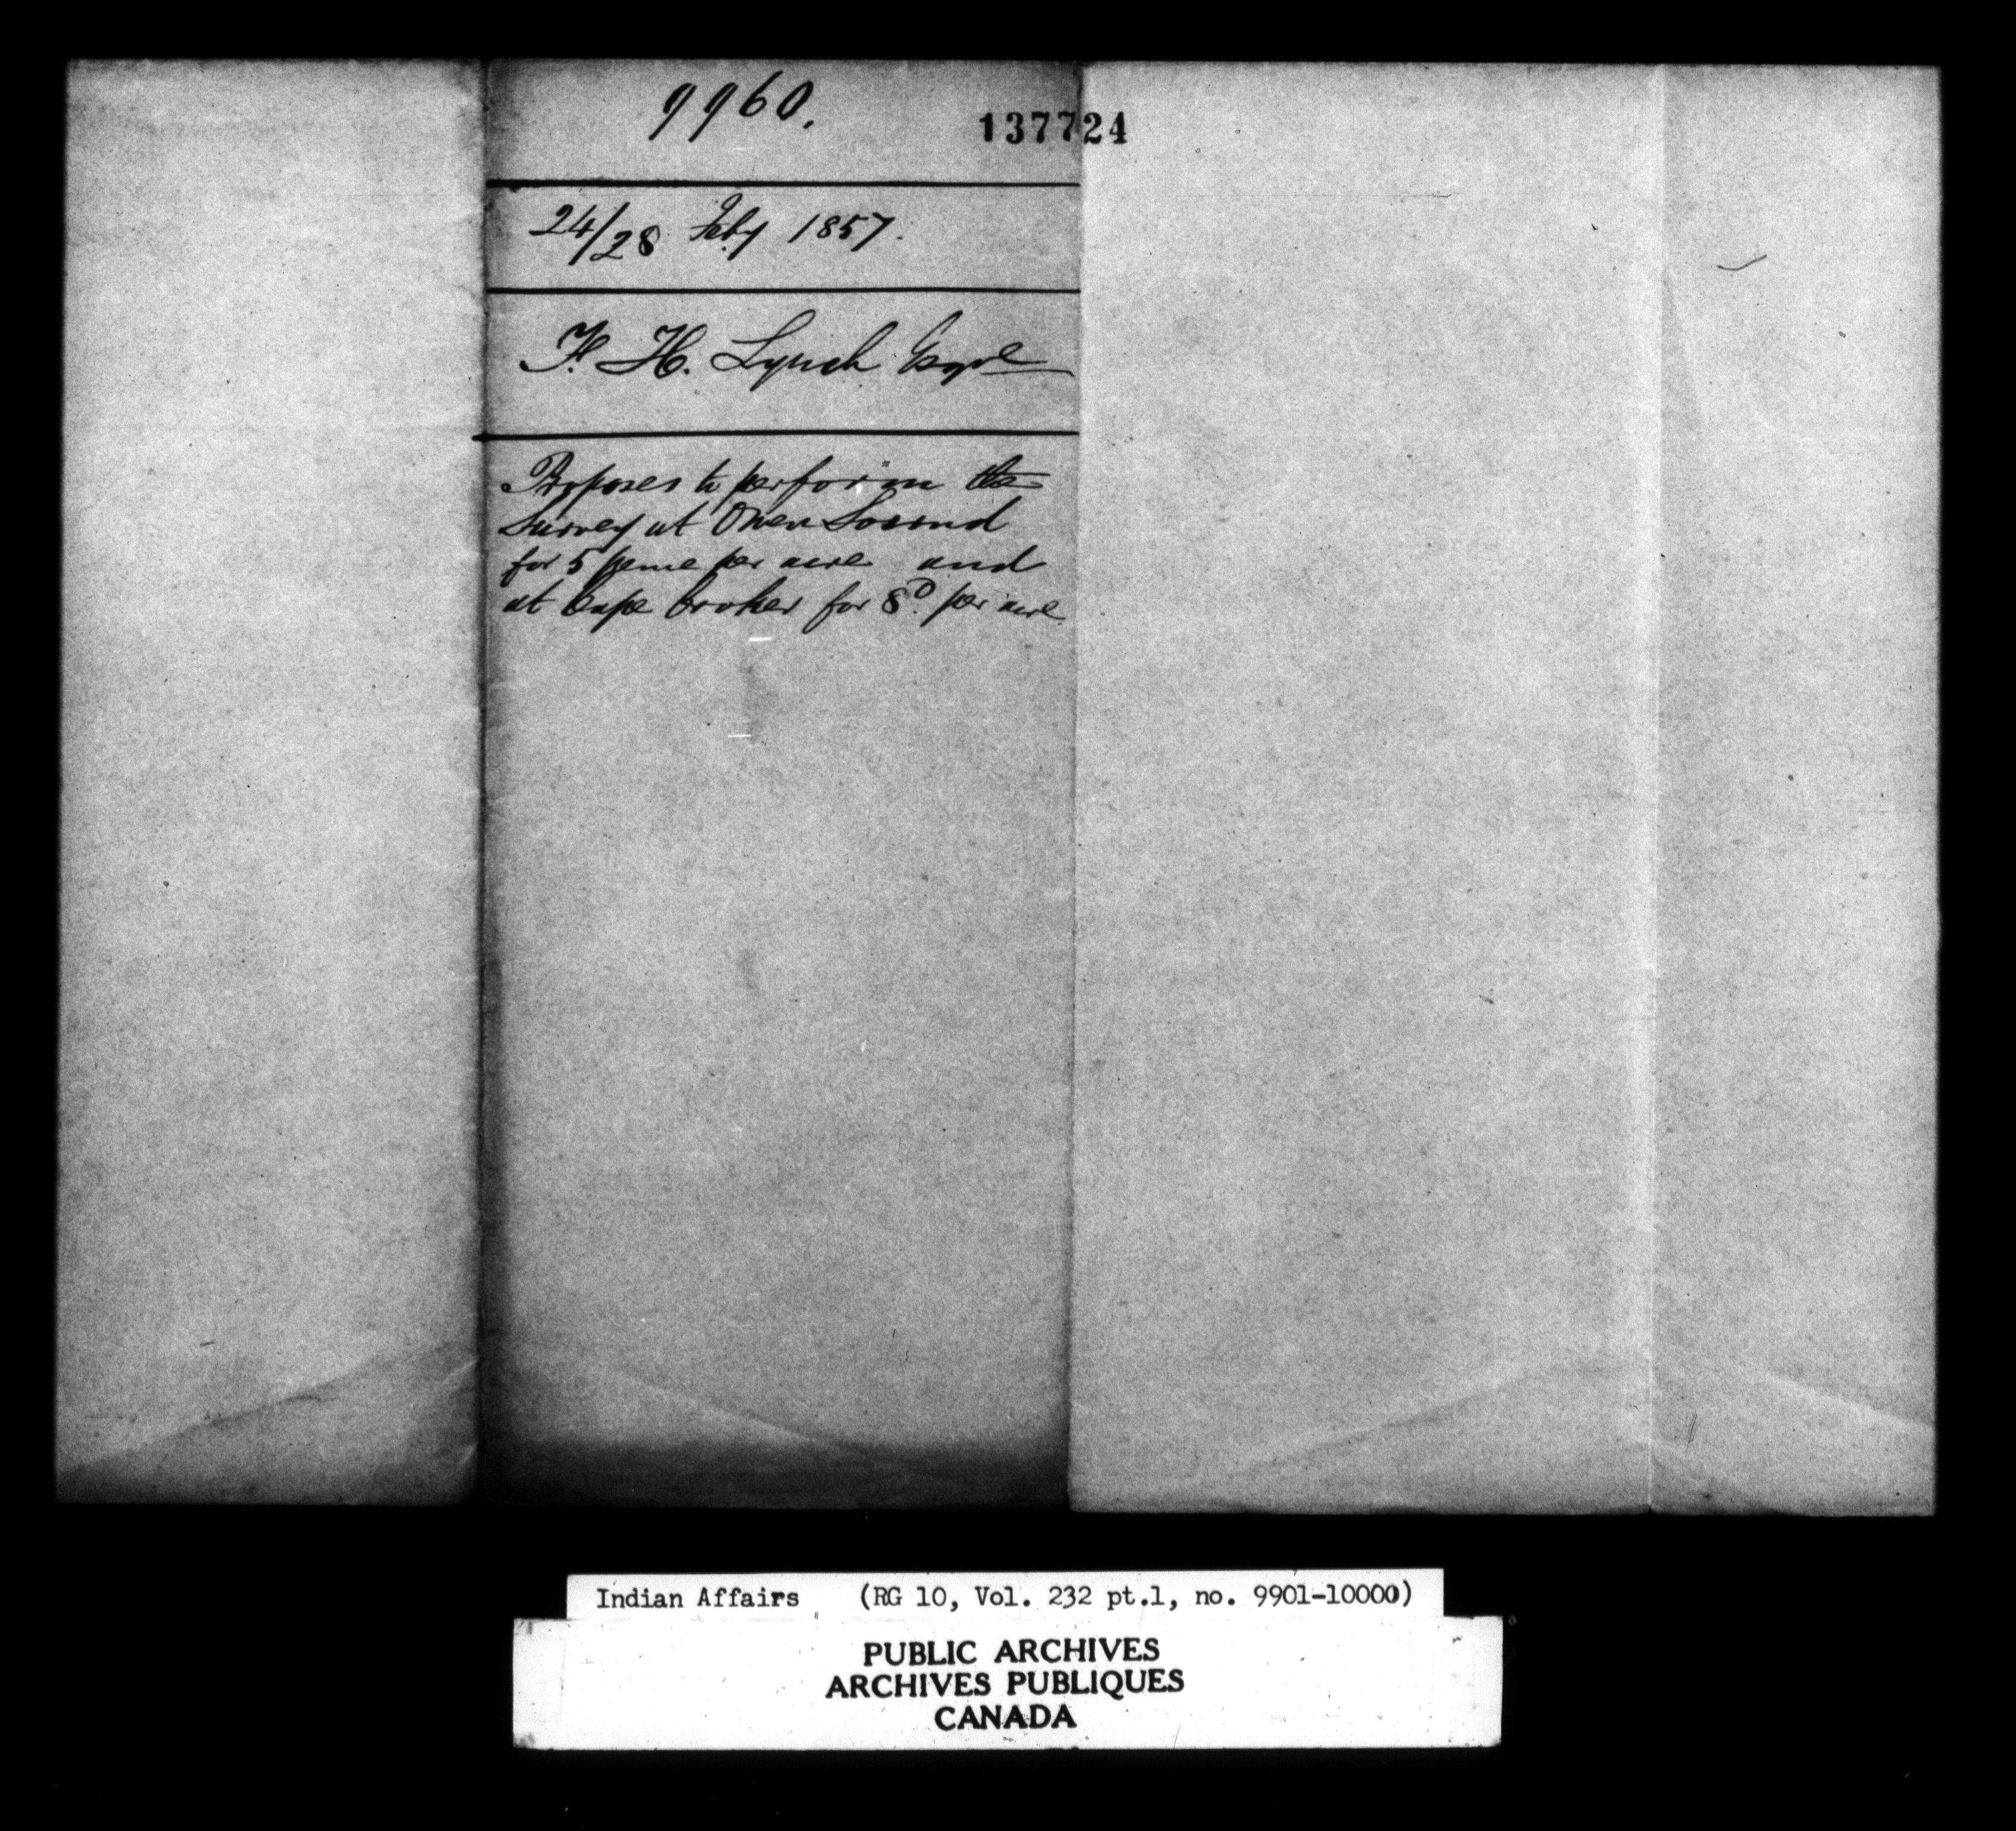 9960.
137724
24/28 Feby 1857.
F. H. Lynch Esqre
Proposes to perform the
Survey at Owen Sound
for 5 pence per acre and
at Cape Croker for 8D. per acre
Indian Affairs (RG 10, Vol. 232 pt.1, no. 9901-10000)
PUBLIC ARCHIVES
ARCHIVES PUBLIQUES
CANADA